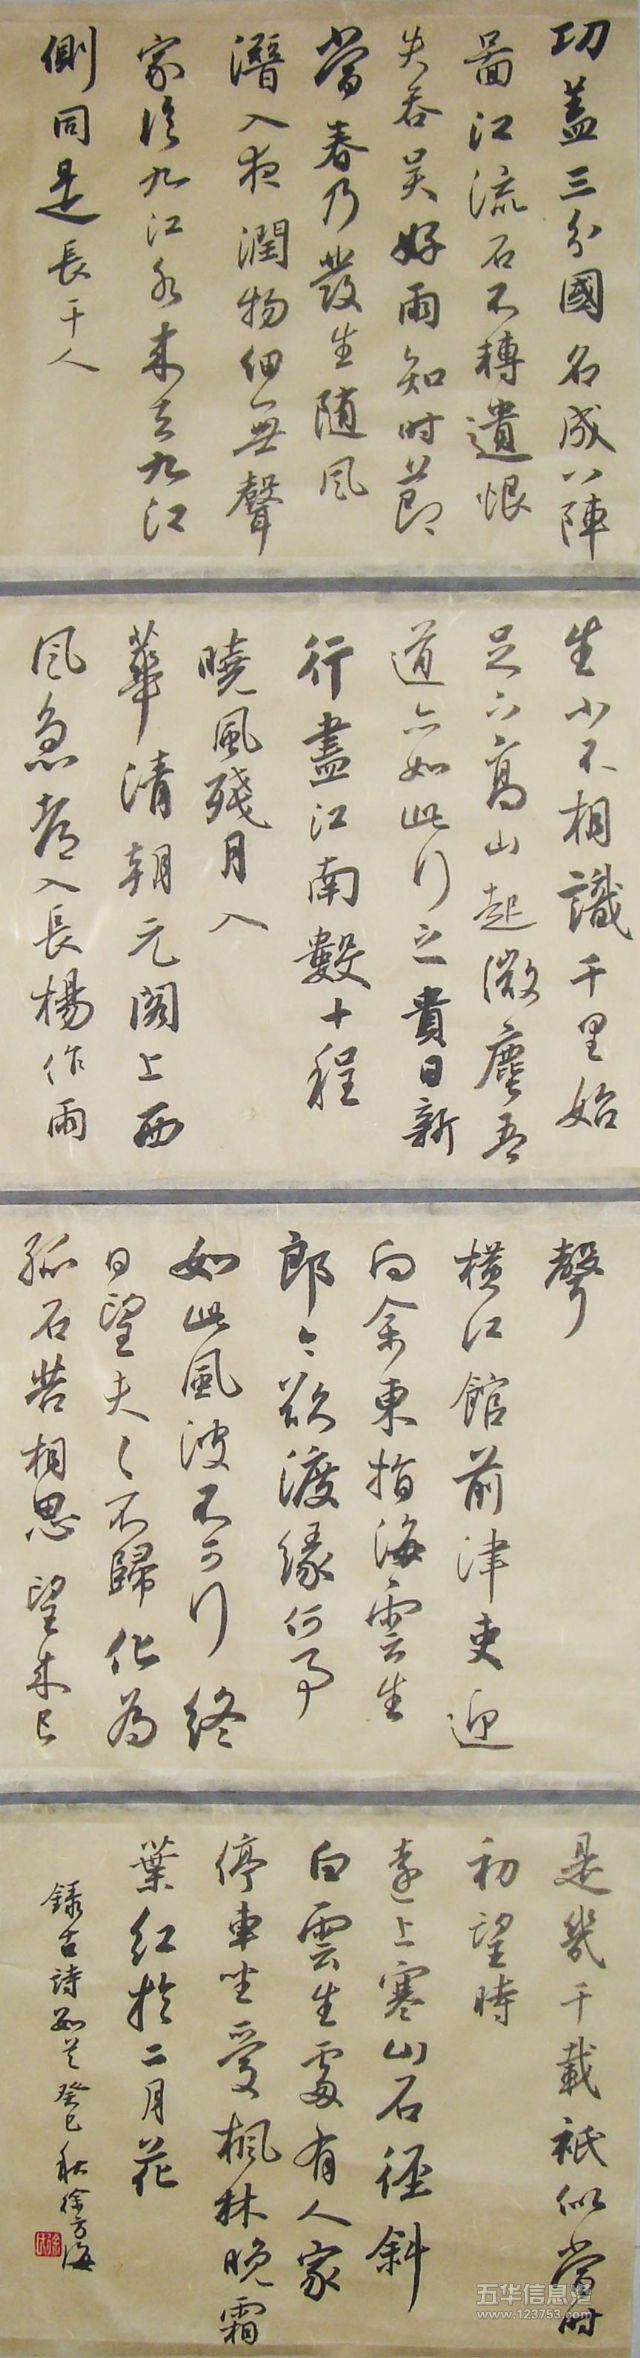 功蓋三分國名成八陣
圖江流石不轉遺恨
失吞吳好雨知时節
當春乃發生随风
潛入夜潤物细無聲
家临九江水来去九江
側同是長干人
生小不相識千里始
足下高山起微塵吾
道亦如此行之貴日新
行盡江南數十程
曉風殘月入
華清朝元閣上西
风急都入長楊作雨
聲
橫江館前津吏迎
向余東指海雲生
郎〻欲渡緣何事
如此風波不可行終
日望夫〻不歸化為
孤石苦相思望来已
是幾千載祇似當时
初望時
遠上寒山石徑斜
白雲生處有人家
停車坐愛楓林晚霜
葉紅於二月花
録古詩数首癸巳秋徐方海
五华信息港
www.123753.com